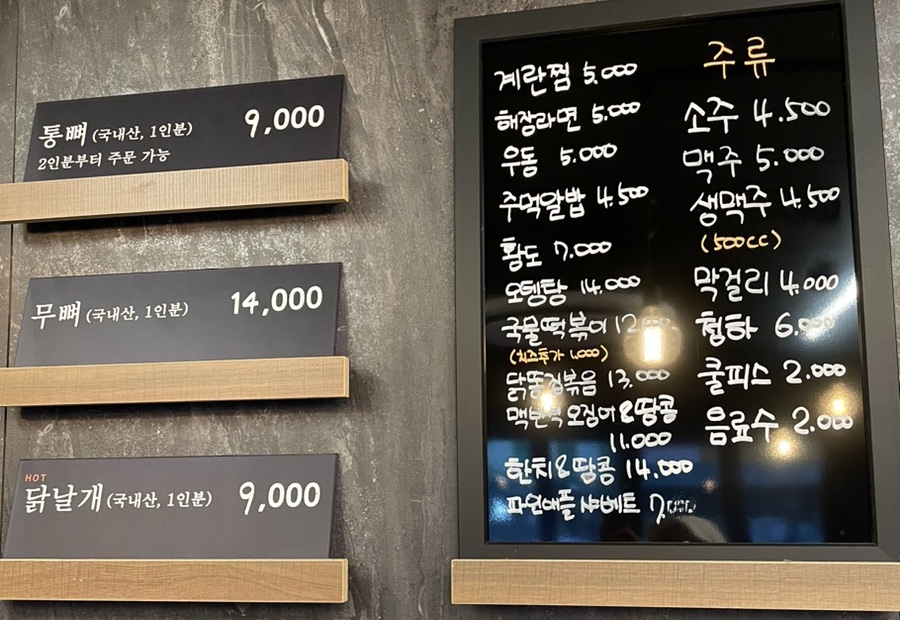 통뼈 (국내산, 1인분) 9,000
2인분부터 주문 가능
무뼈 (국내산, 1인분) 14,000
HOT
닭날개 (국내산, 1인분) 9,000
계란찜 5.000
해장라면 5.000
우동 5.000
주먹알밥 4.500
황도 7.000
오뎅탕 14.000
국물떡볶이 12.000
(치즈추가 1,000)
닭똥집볶음 13.000
맥반석 오징어&땅콩
11.000
한치&땅콩 14.000
파인애플 샤베트 7.000
주류
소주 4.500
맥주 5.000
생맥주 4.500
(500cc)
막걸리 4.000
청하 6.000
쿨피스 2.000
음료수 2.000